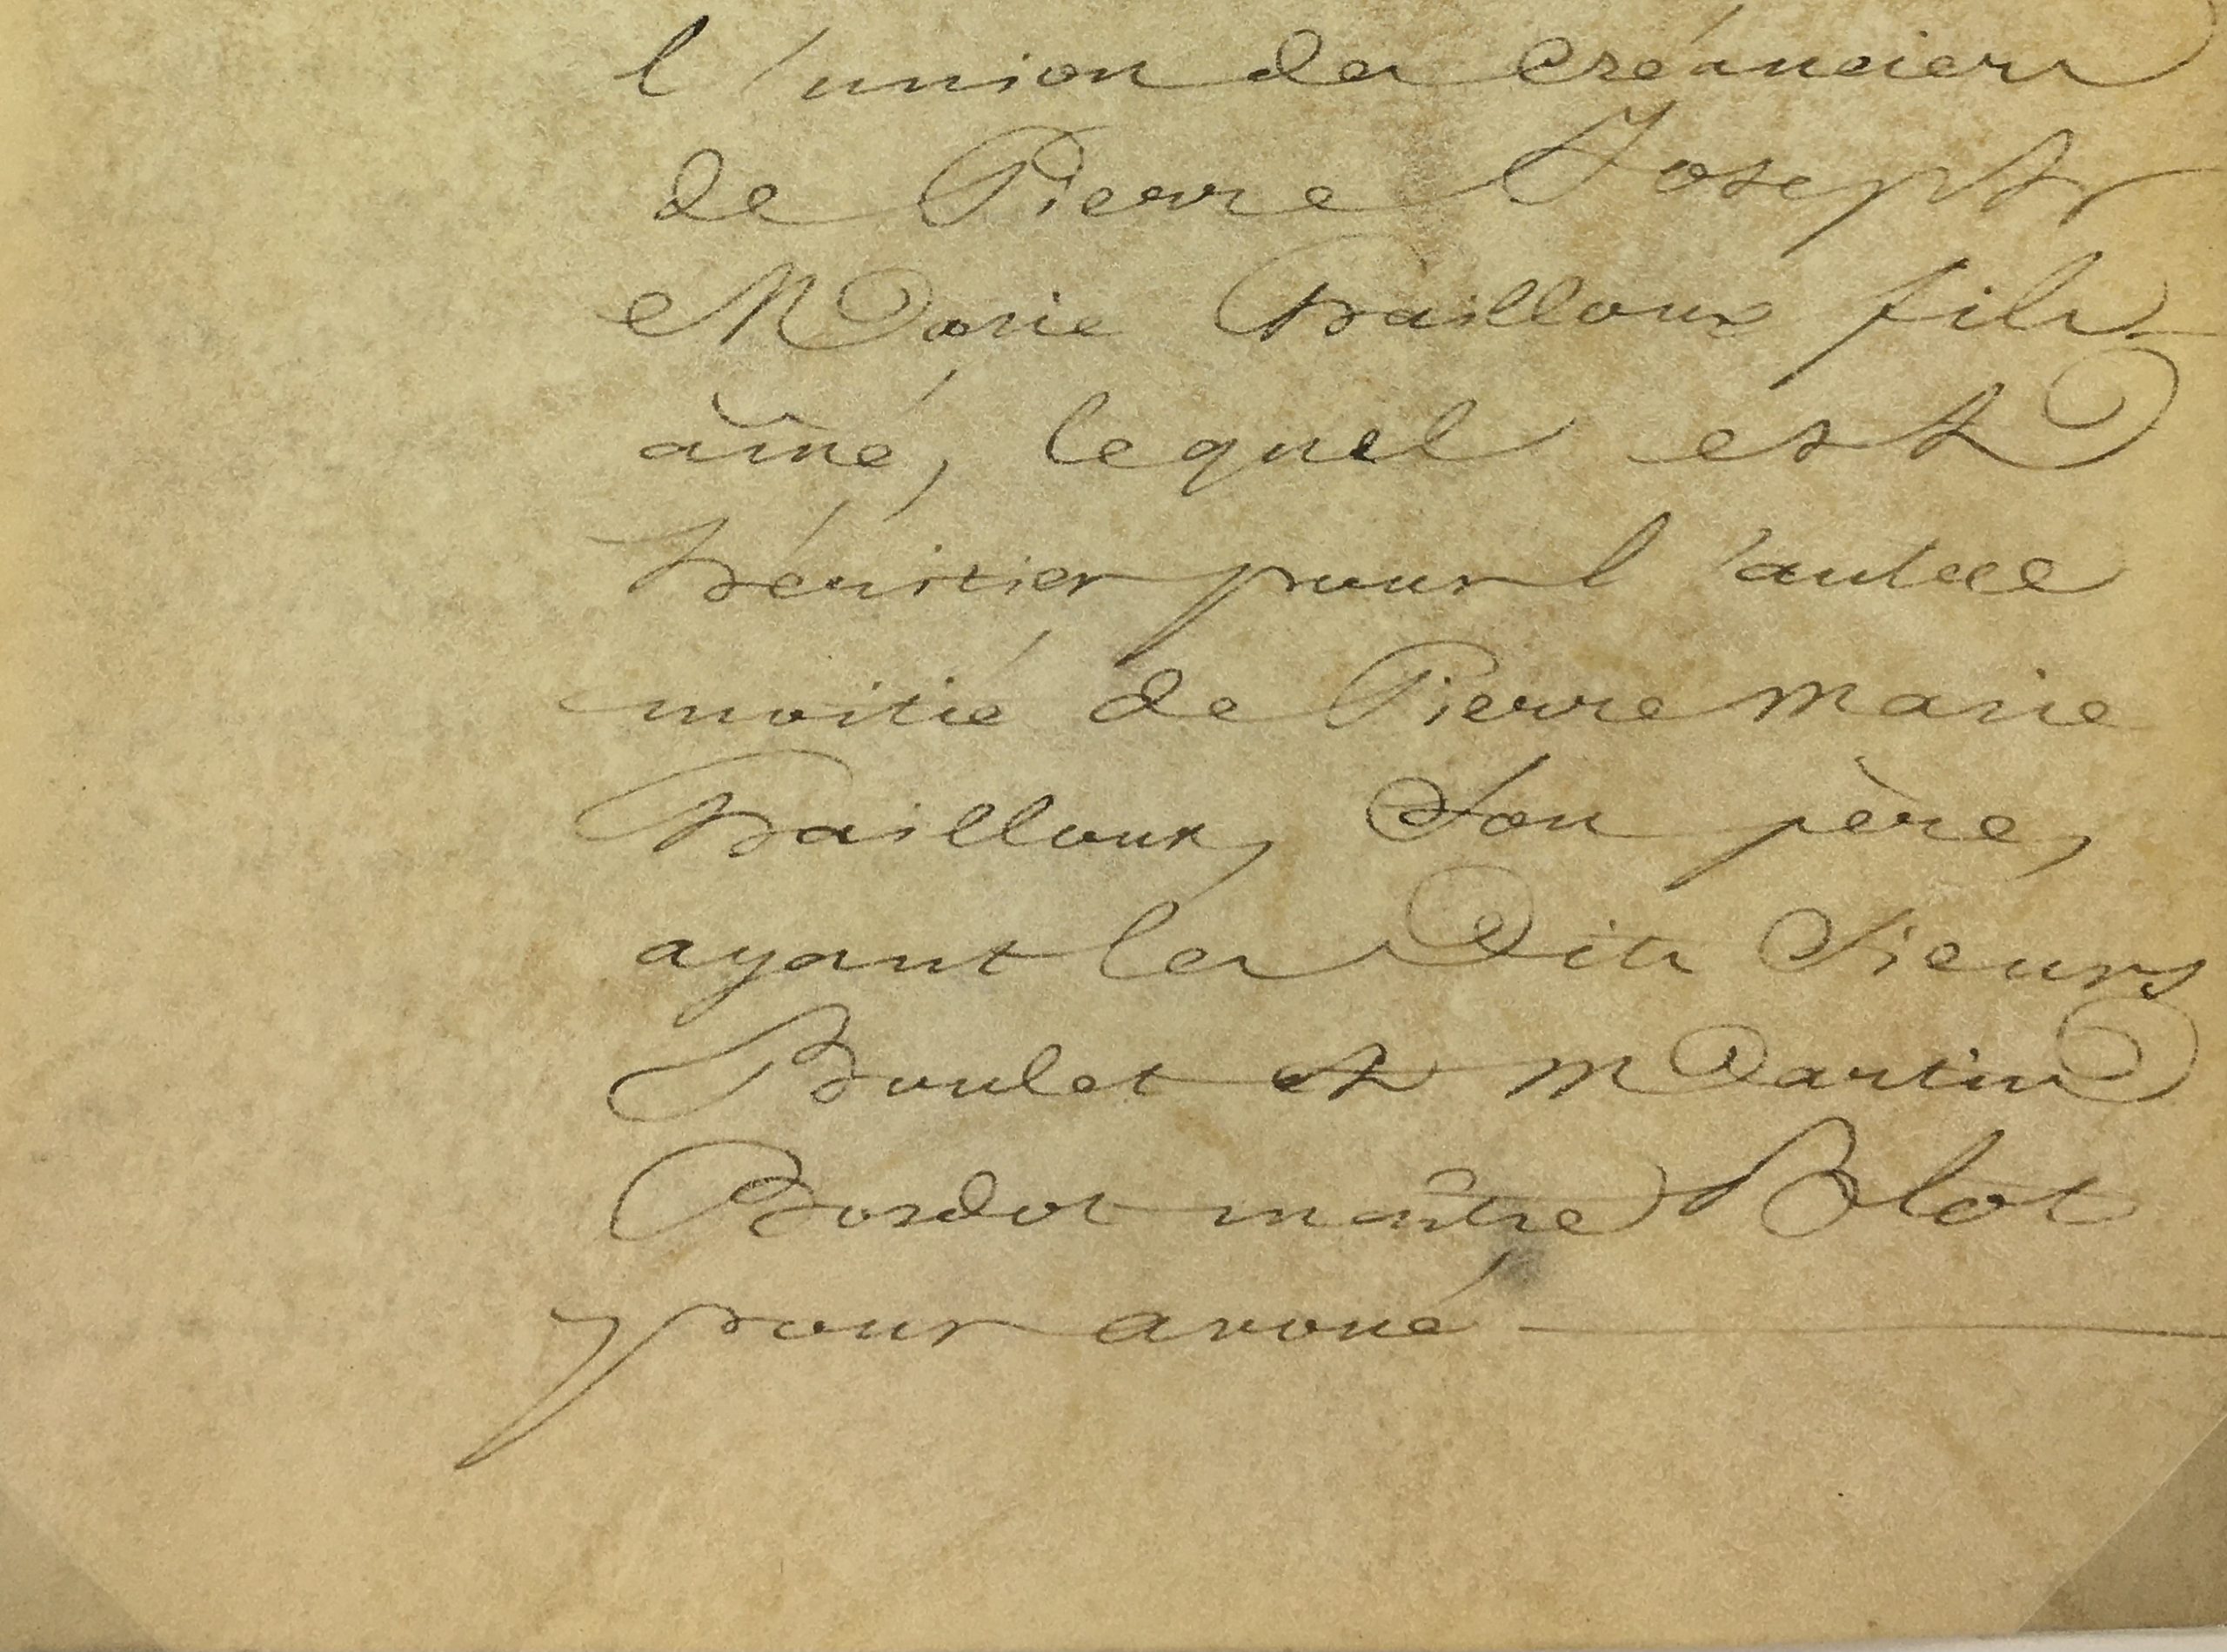 l'union des créanciers
de Pierre Joseph
Marie Hailloux fils
aîné, lequel est
héritier pour l'autre
moitié de Pierre Marie
Hailloux, Son père,
ayant les dits Sieurs
Boulet et Martin
Bordot maître Blot
pour avoué